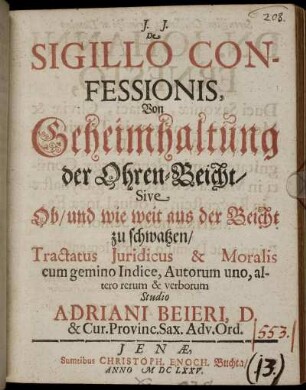 208.
J. J.
De
SIGILLO CON-
FESSIONIS,
Von
Geheimhaltung
der Ohren-Beicht/
Sive
Ob/ und wie weit aus der Beicht
zu schwatzen/
Tractatus Juridicus & Moralis
cum gemino Indice, Autorum uno, al-
tero rerum & verborum
Studio
ADRIANI BEIERI, D.
& Cur.Provinc.Sax. Adv.Ord.
553.
JENÆ,
Sumtibus CHRISTOPH. ENOCH. Buchta,
ANNO M DC LXXV.
(13.)